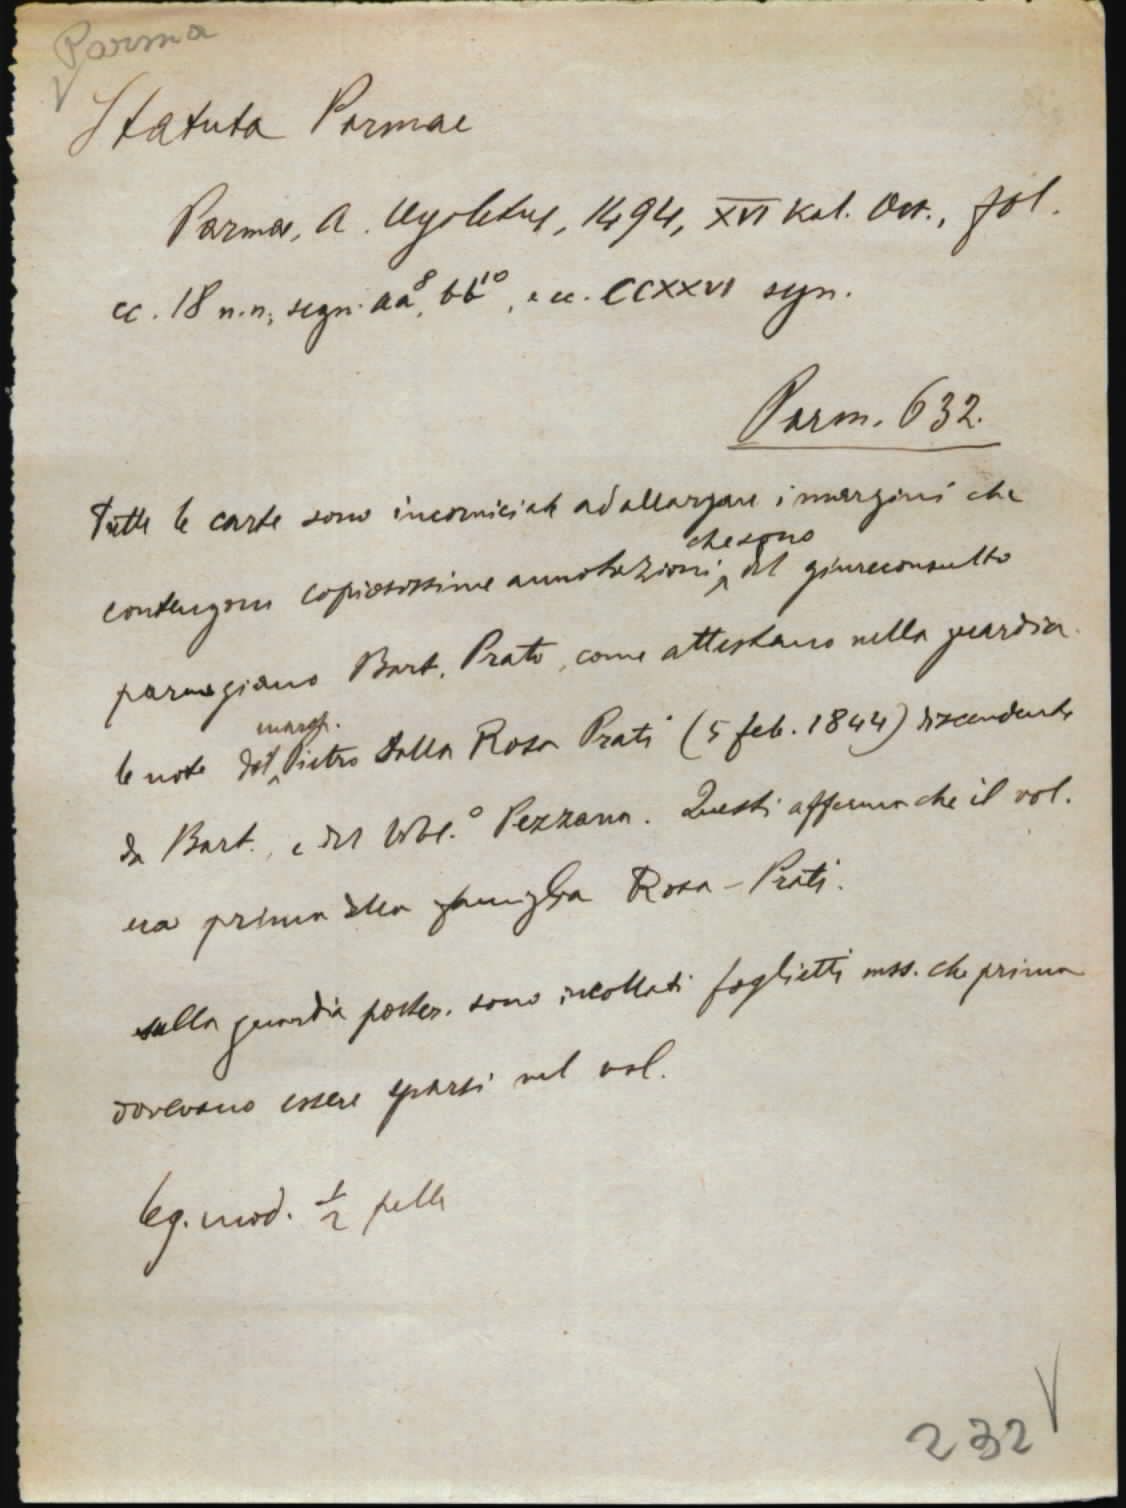 Parma
Statuta Parmae
Parmae, A. Ugoletus, 1494, XVI Kal. Oct., fol.
cc. 18 n.n., segn. aa⁸, bb¹⁰, e cc. CCXXVI segn.
Parm. 632.
Tutte le carte sono incorniciate ad allargare i margini che
contengono copiosissime annotazioni, che sono del giureconsulto
parmegiano Bart. Prato, come attestano nella guardia
le note del march. Pietro Dalla Rosa Prati (5 feb. 1844) discendente
da Bart., e del bibl.° Pezzana. Questi afferma che il vol.
era prima della famiglia Rosa-Prati.
sulla guardia poster. sono incollati foglietti mss. che prima
dovevano essere sparsi nel vol.
leg. mod. ½ pelle
232